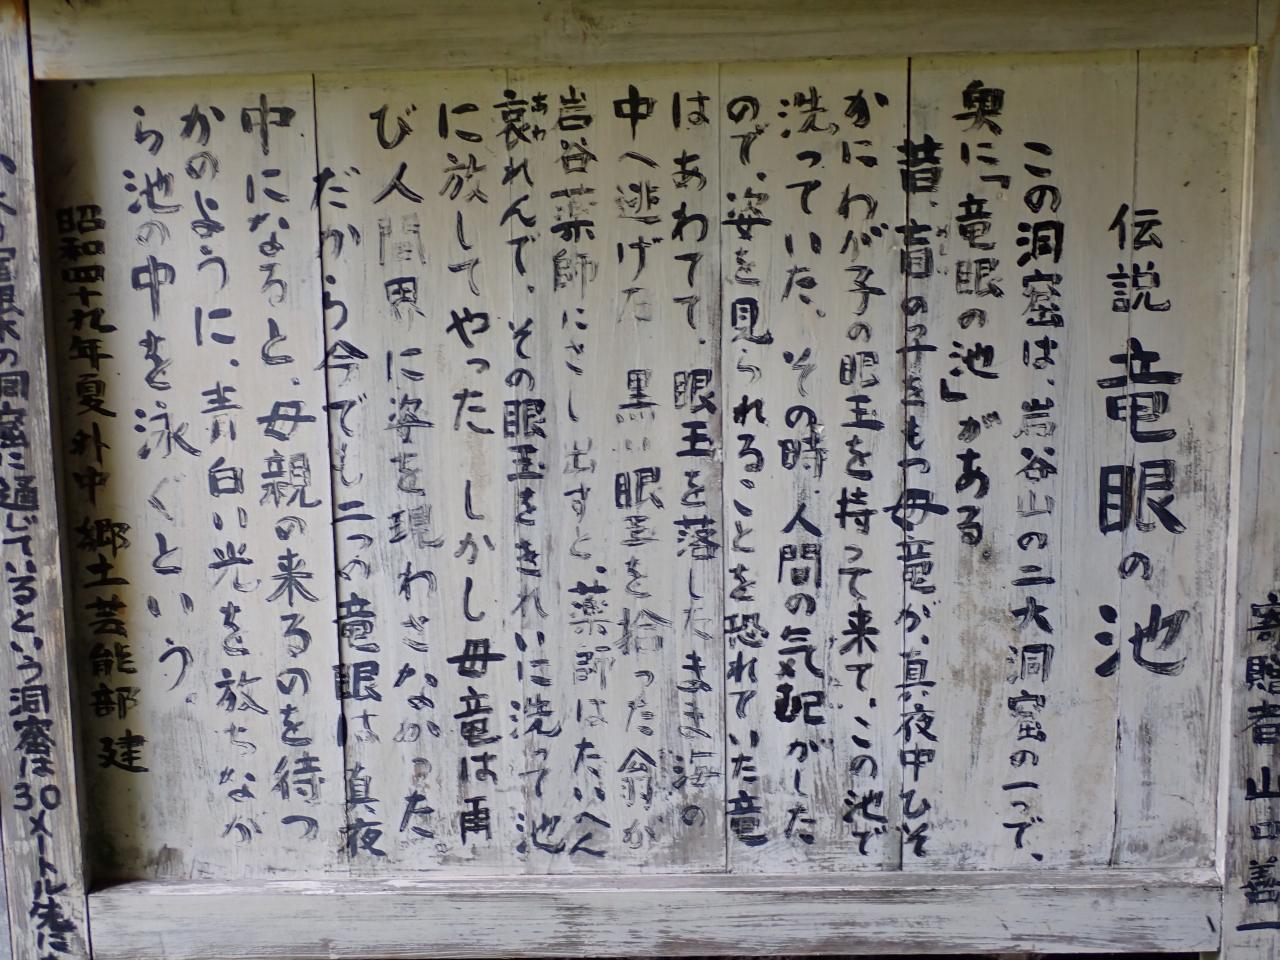 伝説 竜眼の池
この洞窟は、岩谷山の二大洞窟の一つで、
奥に「竜眼の池」がある。
昔、盲の子をもつ母竜が、真夜中ひそ
かにわが子の眼玉を持って来て、この池で
洗っていた。その時、人間の気配がした
ので、姿を見られることを恐れていた竜
はあわてて、眼玉を落したまま海の
中へ逃げた 黒い眼玉を拾った翁が
岩谷薬師にさし出すと、薬師はたいへん
哀れんで、その眼玉をきれいに洗って池
に放してやった しかし母竜は再
び人間界に姿を現わさなかった。
だから今でも二つの竜眼は真夜
中になると、母親の来るのを待つ
かのように、青白い光を放ちなが
ら池の中を泳ぐという。
昭和四十九年夏 外中郷土芸能部 建
の洞窟に通じているという洞窟は30メートル先に
山口善一